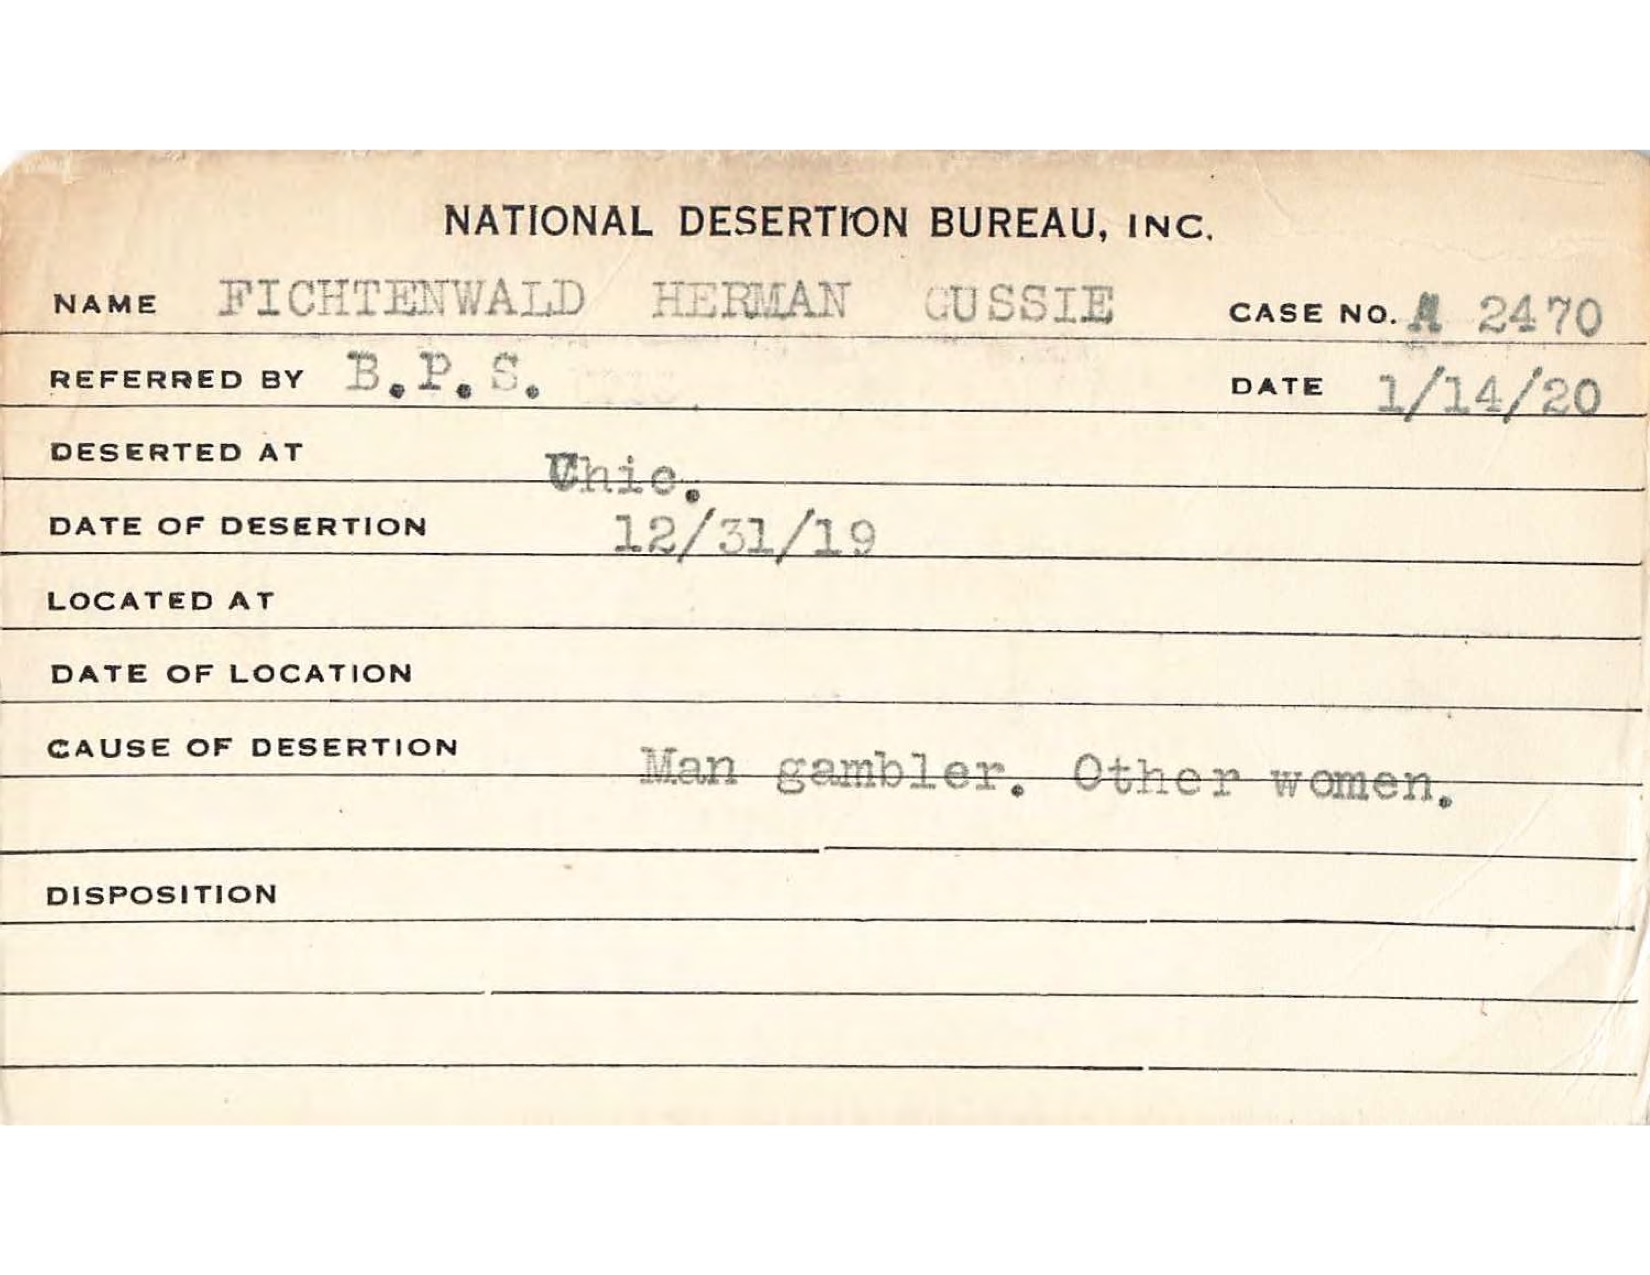 NATIONAL DESERTION BUREAU, INC.
NAME FICHTENWALD HERMAN GUSSIE CASE NO. A 2470
REFERRED BY B.P.S. DATE 1/14/20
DESERTED AT Chic.
DATE OF DESERTION 12/31/19
LOCATED AT
DATE OF LOCATION
CAUSE OF DESERTION Man gambler. Other women.
DISPOSITION